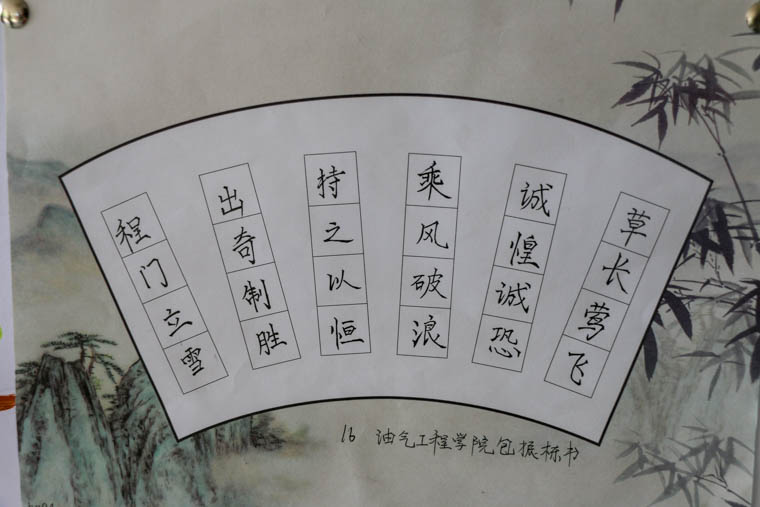 草长莺飞
诚惶诚恐
乘风破浪
持之以恒
出奇制胜
程门立雪
16 油气工程学院包振栋书